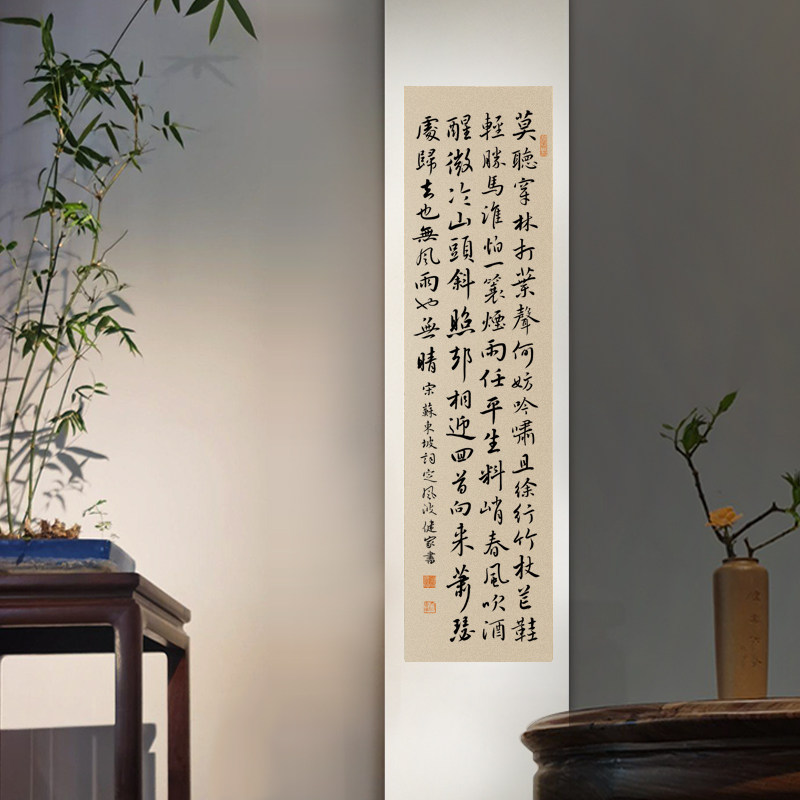 莫聽穿林打葉聲何妨吟嘯且徐行竹杖芒鞋
輕勝馬誰怕一蓑煙雨任平生料峭春風吹酒
醒微冷山頭斜照却相迎回首向来蕭瑟
處歸去也無風雨也無晴 宋蘇東坡詞定風波 健家書